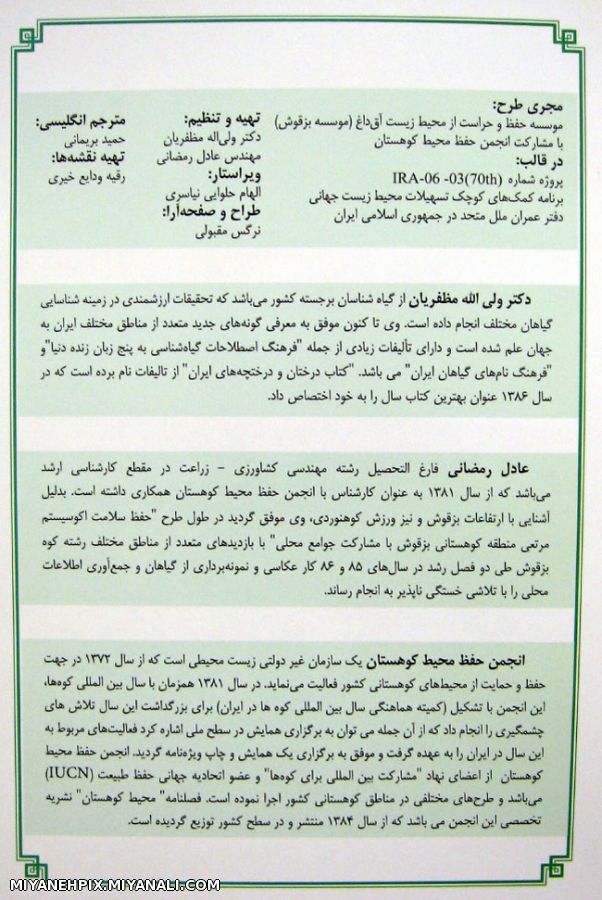 مجری طرح:
موسسه حفظ و حراست از محیط زیست آق‌داغ (موسسه بزقوش)
با مشارکت انجمن حفظ محیط کوهستان
در قالب:
پروژه شماره IRA-06 -03(70th)
برنامه کمک‌های کوچک تسهیلات محیط زیست جهانی
دفتر عمران ملل متحد در جمهوری اسلامی ایران
تهیه و تنظیم:
دکتر ولی‌اله مظفریان
مهندس عادل رمضانی
ویراستار:
الهام حلوایی نیاسری
طراح و صفحه‌آرا:
نرگس مقبولی
مترجم انگلیسی:
حمید بریمانی
تهیه نقشه‌ها:
رقیه ودایع خیری
دکتر ولی الله مظفریان از گیاه شناسان برجسته کشور می‌باشد که تحقیقات ارزشمندی در زمینه شناسایی
گیاهان مختلف انجام داده است. وی تا کنون موفق به معرفی گونه‌های جدید متعدد از مناطق مختلف ایران به
جهان علم شده است و دارای تألیفات زیادی از جمله "فرهنگ اصطلاحات گیاه‌شناسی به پنج زبان زنده دنیا"و
"فرهنگ نام‌های گیاهان ایران" می باشد. "کتاب درختان و درختچه‌های ایران" از تالیفات نام برده است که در
سال ۱۳۸۶ عنوان بهترین کتاب سال را به خود اختصاص داد.
عادل رمضانی فارغ التحصیل رشته مهندسی کشاورزی – زراعت در مقطع کارشناسی ارشد
می‌باشد که از سال ۱۳۸۱ به عنوان کارشناس با انجمن حفظ محیط کوهستان همکاری داشته است. بدلیل
آشنایی با ارتفاعات بزقوش و نیز ورزش کوهنوردی، وی موفق گردید در طول طرح "حفظ سلامت اکوسیستم
مرتعی منطقه کوهستانی بزقوش با مشارکت جوامع محلی" با بازدیدهای متعدد از مناطق مختلف رشته کوه
بزقوش طی دو فصل رشد در سال‌های ۸۵ و ۸۶ کار عکاسی و نمونه‌برداری از گیاهان و جمع‌آوری اطلاعات
محلی را با تلاشی خستگی ناپذیر به انجام رساند.
انجمن حفظ محیط کوهستان یک سازمان غیر دولتی زیست محیطی است که از سال ۱۳۷۲ در جهت
حفظ و حمایت از محیط‌های کوهستانی کشور فعالیت می‌نماید. در سال ۱۳۸۱ همزمان با سال بین المللی کوه‌ها،
این انجمن با تشکیل (کمیته هماهنگی سال بین المللی کوه ها در ایران) برای بزرگداشت این سال تلاش های
چشمگیری را انجام داد که از آن جمله می توان به برگزاری همایش در سطح ملی اشاره کرد فعالیت‌های مربوط به
این سال در ایران را به عهده گرفت و موفق به برگزاری یک همایش و چاپ ویژه‌نامه گردید. انجمن حفظ محیط
کوهستان از اعضای نهاد "مشارکت بین المللی برای کوه‌ها" و عضو اتحادیه جهانی حفظ طبیعت (IUCN)
می‌باشد و طرح‌های مختلفی در مناطق کوهستانی کشور اجرا نموده است. فصلنامه" محیط کوهستان" نشریه
تخصصی این انجمن می باشد که از سال ۱۳۸۴ منتشر و در سطح کشور توزیع گردیده است.
MIYANEHPIX.MIYANALI.COM